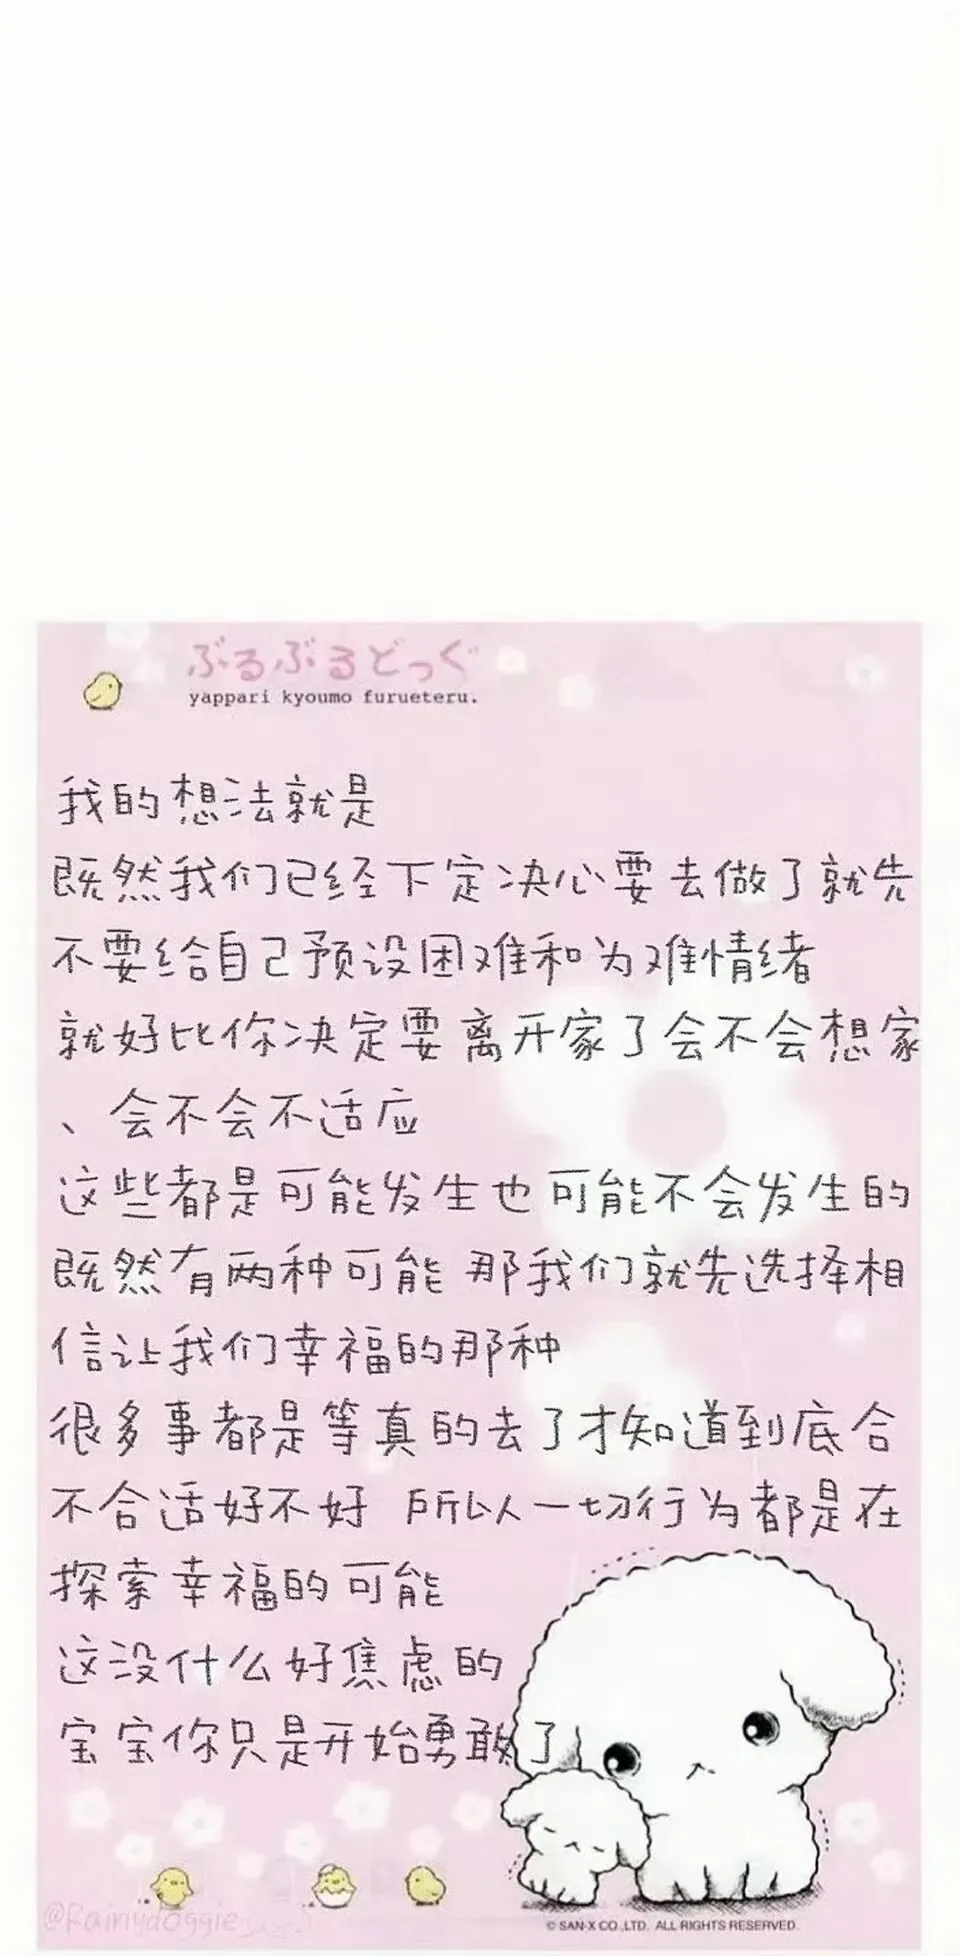 ぶるぶるどっぐ
yappari kyoumo furueteru.
我的想法就是
既然我们已经下定决心要去做了就先
不要给自己预设困难和为难情绪
就好比你决定要离开家了会不会想家
、会不会不适应
这些都是可能发生也可能不会发生的
既然有两种可能 那我们就先选择相
信让我们幸福的那种
很多事都是等真的去了才知道到底合
不合适好不好 所以一切行为都是在
探索幸福的可能
这没什么好焦虑的
宝宝你只是开始勇敢了
@Rainydoggie
© SAN-X CO.,LTD. ALL RIGHTS RESERVED.